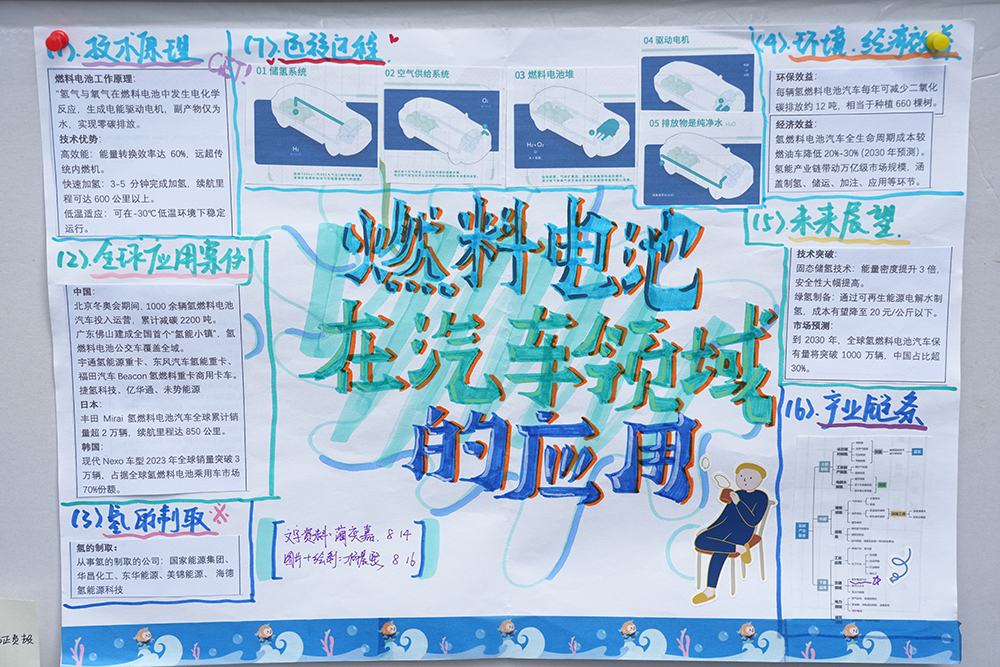 (1). 技术原理
燃料电池工作原理:
"氢气与氧气在燃料电池中发生电化学
反应，生成电能驱动电机，副产物仅为
水，实现零碳排放。
技术优势:
高效能: 能量转换效率达 60%, 远超传
统内燃机。
快速加氢: 3-5 分钟完成加氢，续航里
程可达 600 公里以上。
低温适应: 可在-30℃低温环境下稳定
运行。
(2). 全球应用案例
中国:
北京冬奥会期间，1000 余辆氢燃料电池
汽车投入运营，累计减碳 2200 吨。
广东佛山建成全国首个"氢能小镇"，氢
燃料电池公交车覆盖全域。
宇通氢能源重卡、东风汽车氢能重卡、
福田汽车 Beacon 氢燃料重卡商用卡车。
捷氢科技、亿华通、未势能源
日本:
丰田 Mirai 氢燃料电池汽车全球累计销
量超 2 万辆，续航里程达 850 公里。
韩国:
现代 Nexo 车型 2023 年全球销量突破 3
万辆，占据全球氢燃料电池乘用车市场
70%份额。
(3). 氢的制取
氢的制取:
从事氢的制取的公司: 国家能源集团、
华昌化工、东华能源、美锦能源、 海德
氢能源科技
(7).
01 储氢系统
H₂
02 空气供给系统
O₂
03 燃料电池堆
H₂+O₂
04 驱动电机
05 排放物是纯净水 H₂O
燃料电池
在汽车领域
的应用
文字资料:
8 14
图片+绘制:
8 16
(4). 环境.经济效益
环保效益:
每辆氢燃料电池汽车每年可减少二氧化
碳排放约 12 吨，相当于种植 660 棵树。
经济效益:
氢燃料电池汽车全生命周期成本较
燃油车降低 20%-30% (2030 年预测)。
氢能产业链带动万亿级市场规模，涵
盖制氢、储运、加注、应用等环节。
(5). 未来展望
技术突破:
固态储氢技术: 能量密度提升 3 倍，
安全性大幅提高。
绿氢制备: 通过可再生能源电解水制
氢，成本有望降至 20 元/公斤以下。
市场预测:
到 2030 年，全球氢燃料电池汽车保
有量将突破 1000 万辆，中国占比超
30%。
(6). 产业链条